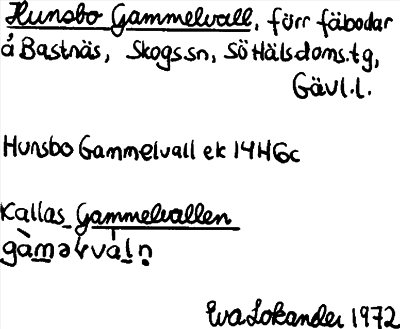 Hunsbo Gammelvall, förr fäbodar
å Bastnäs, Skogs sn, Sö Hälsdoms.tg,
Gävl.l.
Hunsbo Gammelvall ek 14H6c
Kallas Gammelvallen
Eva Lokander 1972